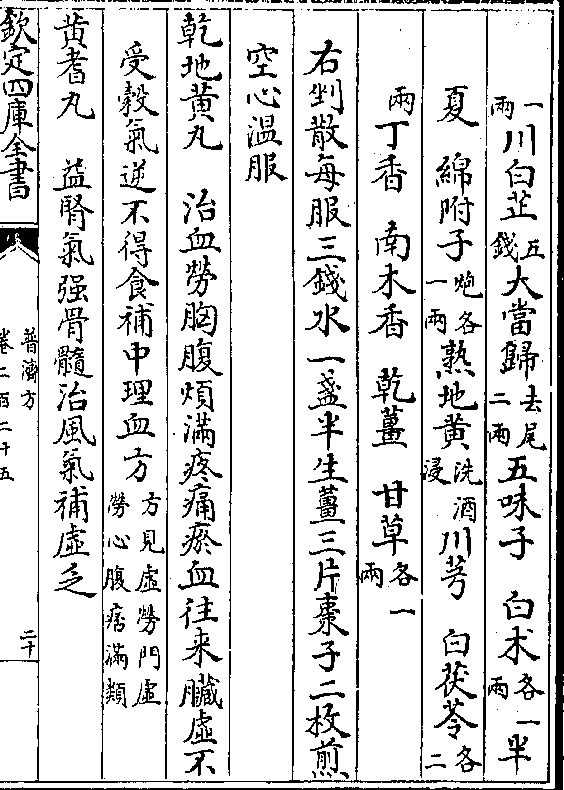 一兩川白芷五錢大當歸去尾二兩五味子 白术各一兩半
夏 綿附子炮各一兩熟地黄洗酒浸川芎 白茯苓各二
兩丁香 南木香 乾薑 甘草各一兩
右剉散每服三錢水一盞半生薑三片棗子二枚煎
空心温服
乾地黄丸 治血勞胸腹煩滿疼痛瘀血往来臟虚不
受穀氣逆不得食補中理血方方見虚勞門虚勞心腹痞滿類
黄耆丸 益腎氣强骨髓治風氣補虚乏
欽定四庫全書
普濟方
卷二百二十五
二十